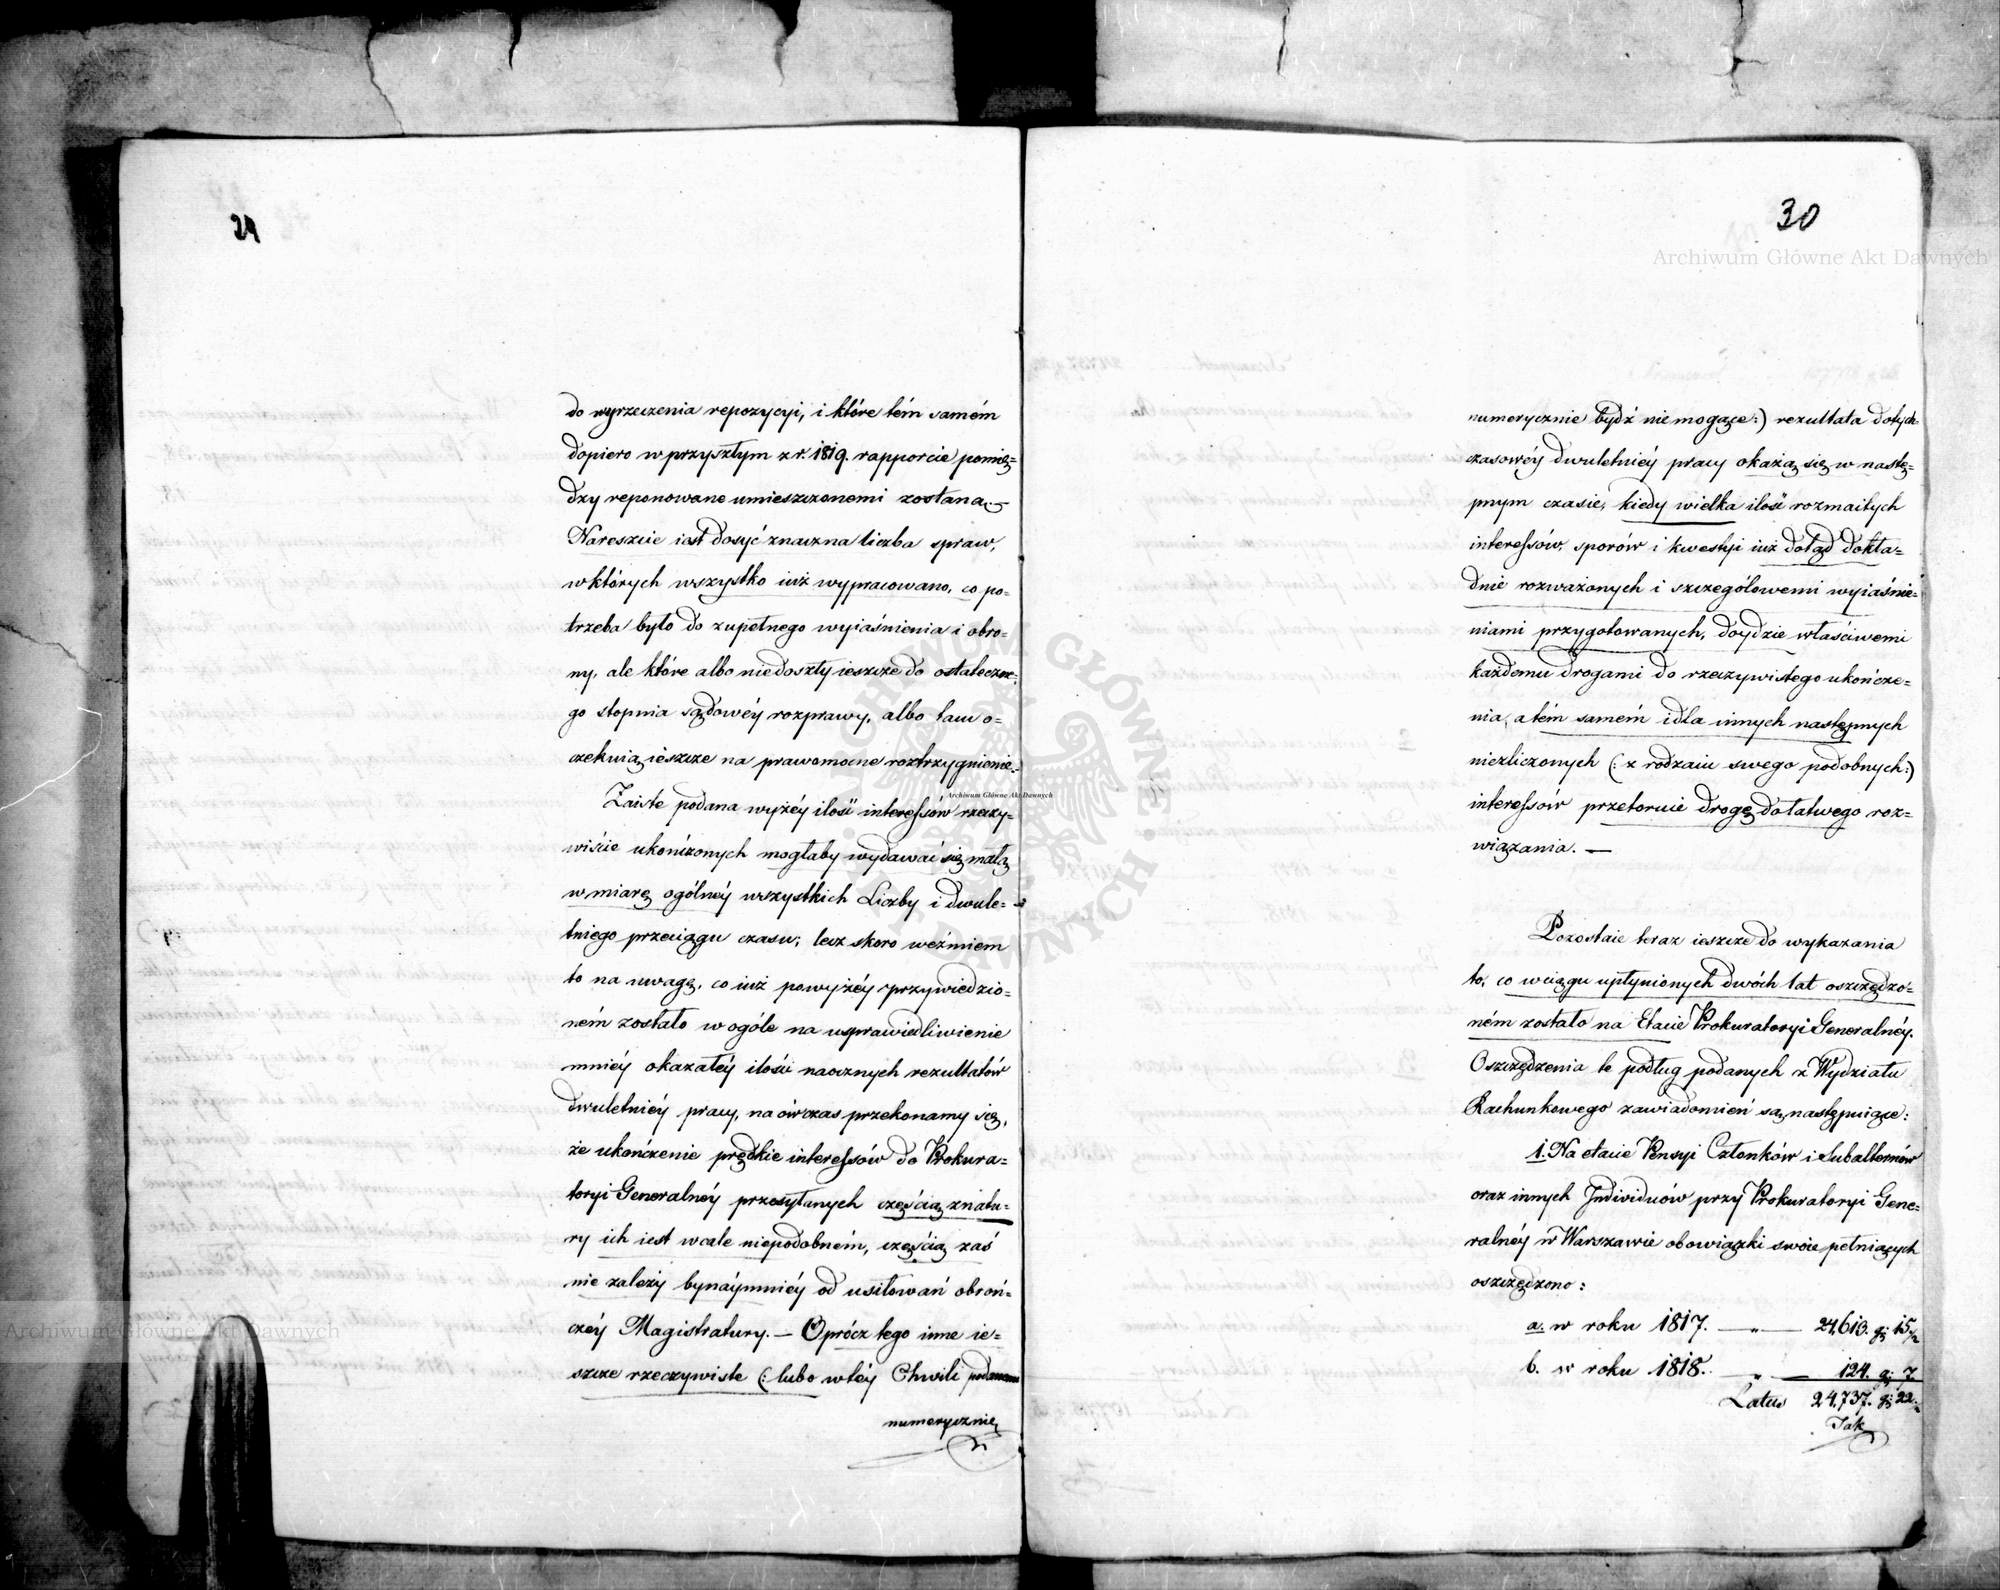 29
do wyrzeczenia repozycyi, i które tém samém
dopiero w przyszłym z r. 1819. rapporcie pomię=
dzy reponowane umieszczonemi zostaną. —
Nareszcie iest dosyć znaczna liczba spraw,
w których wszystko iuż wypracowano, co po=
trzeba było do zupełnego wyiaśnienia i obro=
ny, ale które albo niedoszły ieszcze do ostateczne=
go stopnia sądowéy rozprawy, albo tam o=
czekuią ieszcze na prawomocne roztrzygnienie.
Zaiste podana wyżéy ilość interessów rzeczy=
wiście ukończonych mogłaby wydawać się małą
w miarę ogólnéy wszystkich Liczby i dwule=
tniego przeciągu czasu; lecz skoro weźmiem
to na uwagę, co iuż powyżéy przywiedzio=
ném zostało w ogóle na usprawiedliwienie
mniéy okazałéy ilości naocznych rezultatów
dwuletniéy pracy, na ówczas przekonamy się,
że ukończenie prędkie interessów do Prokura=
toryi Generalnéy przesyłanych częścią z natu=
ry ich iest wcale niepodobném, częścią zaś
nie zależy bynaymniéy od usiłowań obroń=
czéy Magistratury. — Oprócz tego inne ie=
szcze rzeczywiste (: lubo w téy Chwili podanemi
numerycznie
30
numerycznie bydź niemogące :) rezultata dotych=
czasowéy dwuletniéy pracy okażą się w nastę=
pnym czasie, kiedy wielka ilość rozmaitych
interessów, sporów i kwestyi iuż dotąd dokła=
dnie rozważonych i szczegółowemi wyiaśnie=
niami przygotowanych, doydzie właściwemi
każdemu drogami do rzeczywistego ukończe=
nia, a tém samém i dla innych następnych
niezliczonych (: z rodzaiu swego podobnych :)
interessów przetoruie drogę do łatwego roz=
wiązania. —
Pozostaie teraz ieszcze do wykazania
to, co w ciągu upłynionych dwóch lat oszczędzo=
ném zostało na Etacie Prokuratoryi Generalnéy.
Oszczędzenia te podług podanych z Wydziału
Rachunkowego zawiadomień są następuiące:
1. Na etacie Pensyi Członków i Subalternów
oraz innych Indiwiduów przy Prokuratoryi Gene=
ralnéy w Warszawie obowiązki swoie pełniących
oszczędzono:
a. w roku 1817. — „ — 24,613. gr 15 1/2
b. w roku 1818. — „ — 124. gr 7
Latus 24,737. gr 22 1/2
Tak
Archiwum Główne Akt Dawnych
Archiwum Główne Akt Dawnych
Archiwum Główne Akt Dawnych